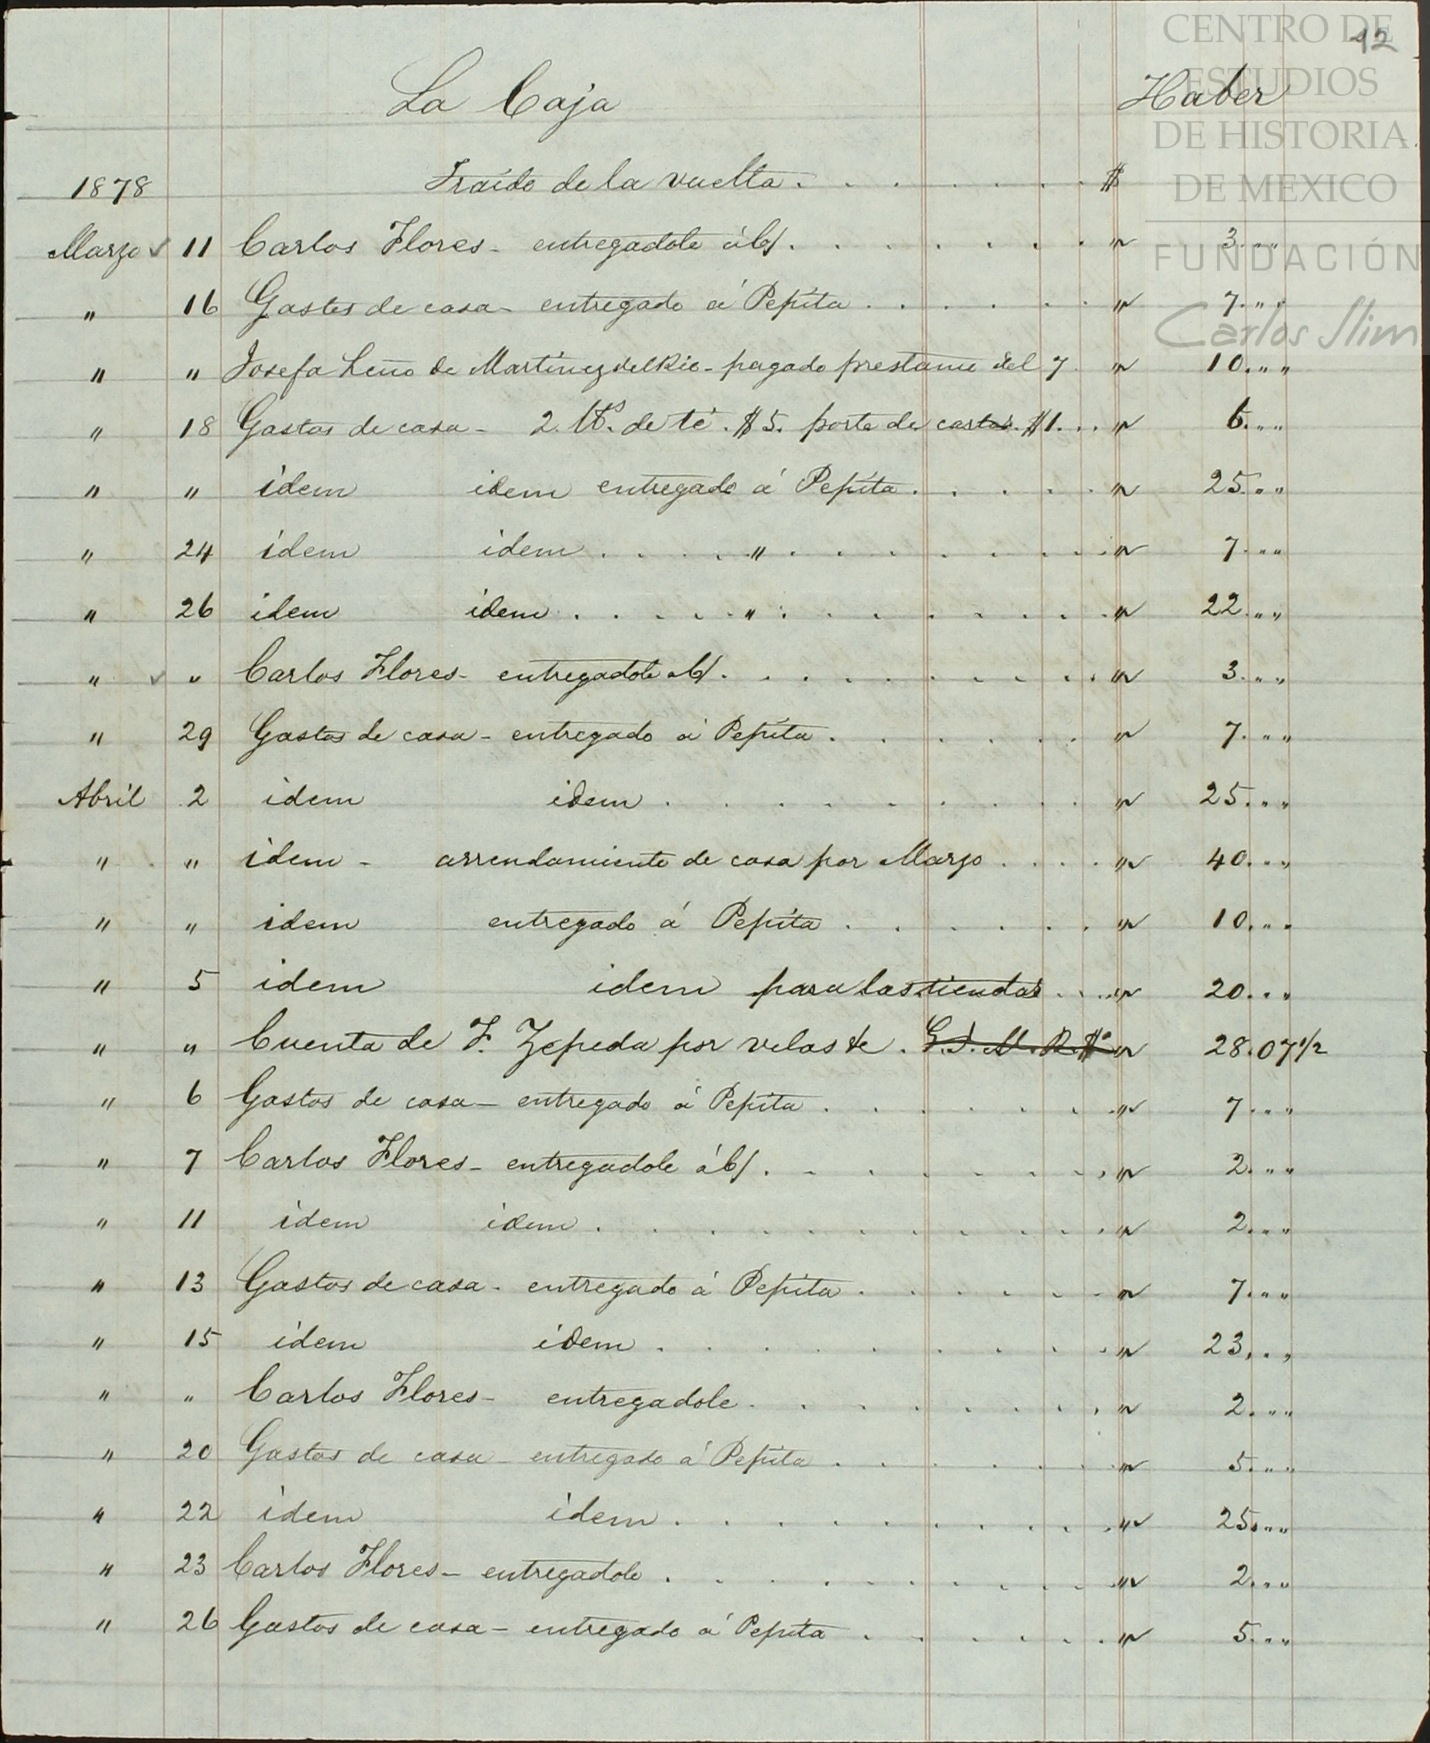 12
La Caja Haber
1878 Traido de la vuelta . . . . . . . $
Marzo 11 Carlos Flores - entregadole á c/ . . . . . . " 3 " "
" 16 Gastos de casa - entregado á Pepita . . . . . " 7 " "
" " Josefa Leño de Martinez del Rio - pagado prestamo del 7 " 10 " "
" 18 Gastos de casa - 2 lbs. de té . $5. porte de cartas $1 . . . " 6 " "
" " idem idem entregado á Pepita . . . . . " 25 " "
" 24 idem idem . . . . " . . . . . . . . " 7 " "
" 26 idem idem . . . . . " . . . . . . . " 22 " "
" " Carlos Flores - entregadole á c/ . . . . . . . . . " 3 " "
" 29 Gastos de casa - entregado á Pepita . . . . . . " 7 " "
Abril 2 idem idem . . . . . . . . . " 25 " "
" " idem - arrendamiento de casa por Marzo . . . . " 40 " "
" " idem entregado á Pepita . . . . . . " 10 " "
" 5 idem idem para las tiendas . . . " 20 " "
" " Cuenta de F. Zepeda por velas &c . " 28.07 1/2
" 6 Gastos de casa - entregado á Pepita . . . . . . . " 7 " "
" 7 Carlos Flores - entregadole á c/ . . . . . . . " 2 " "
" 11 idem idem . . . . . . . . . . " 2 " "
" 13 Gastos de casa - entregado á Pepita . . . . . . " 7 " "
" 15 idem idem . . . . . . . . . " 23 " "
" " Carlos Flores - entregadole . . . . . . . . " 2 " "
" 20 Gastos de casa entregado á Pepita . . . . . . " 5 " "
" 22 idem idem . . . . . . . . . . " 25 " "
" 23 Carlos Flores - entregadole . . . . . . . . . " 2 " "
" 26 Gastos de casa - entregado á Pepita . . . . . . " 5 " "
CENTRO DE
ESTUDIOS
DE HISTORIA
DE MEXICO
FUNDACIÓN
Carlos Slim